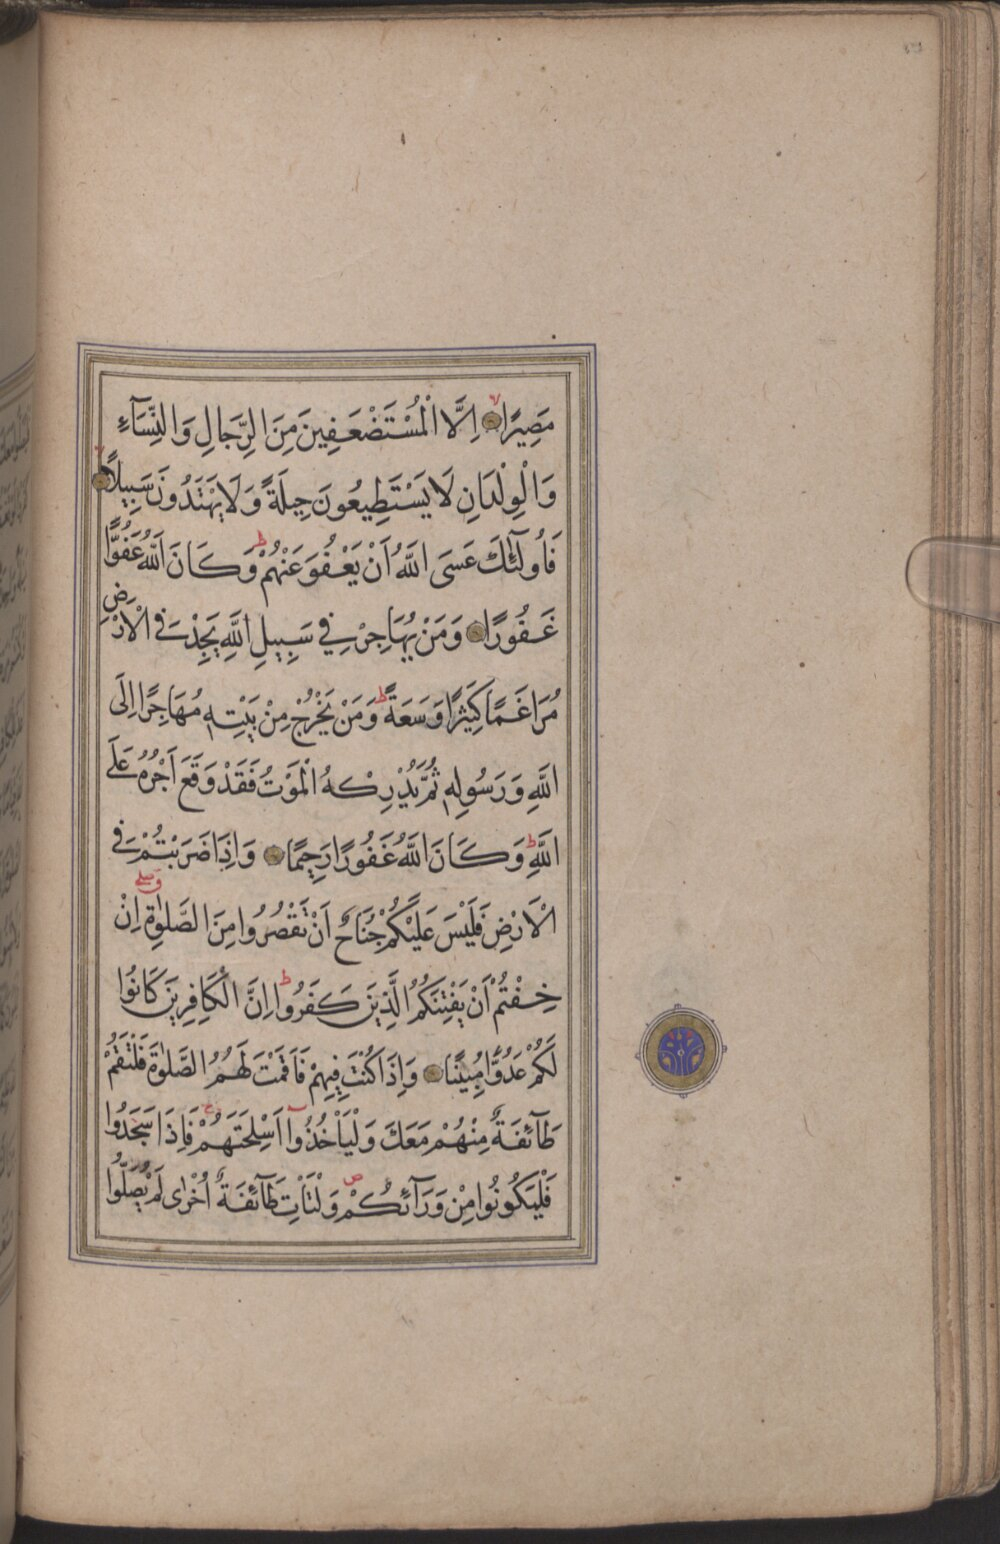 مَصِيرًا ۙ اِلَّا الْمُسْتَضْعَفِينَ مِنَ الرِّجَالِ وَالنِّسَآءِ
وَالْوِلْدَانِ لَا يَسْتَطِيعُونَ حِيلَةً وَلَا يَهْتَدُونَ سَبِيلًا ۙ
فَاُولٰٓئِكَ عَسَى اللّٰهُ اَنْ يَعْفُوَ عَنْهُمْ ؕ وَكَانَ اللّٰهُ عَفُوًّا
غَفُورًا وَمَنْ يُهَاجِرْ فِي سَبِيلِ اللّٰهِ يَجِدْ فِي الْاَرْضِ
مُرَاغَمًا كَثِيرًا وَسَعَةً ؕ وَمَنْ يَخْرُجْ مِنْ بَيْتِهِ مُهَاجِرًا اِلَى
اللّٰهِ وَرَسُولِهِ ثُمَّ يُدْرِكْهُ الْمَوْتُ فَقَدْ وَقَعَ اَجْرُهُ عَلَى
اللّٰهِ ؕ وَكَانَ اللّٰهُ غَفُورًا رَحِيمًا وَاِذَا ضَرَبْتُمْ فِي
الْاَرْضِ فَلَيْسَ عَلَيْكُمْ جُنَاحٌ اَنْ تَقْصُرُوا مِنَ الصَّلٰوةِ اِنْ
خِفْتُمْ اَنْ يَفْتِنَكُمُ الَّذِينَ كَفَرُوا ؕ اِنَّ الْكَافِرِينَ كَانُوا
لَكُمْ عَدُوًّا مُبِينًا وَاِذَا كُنْتَ فِيهِمْ فَاَقَمْتَ لَهُمُ الصَّلٰوةَ فَلْتَقُمْ
طَآئِفَةٌ مِنْهُمْ مَعَكَ وَلْيَاْخُذُوٓا اَسْلِحَتَهُمْ فَاِذَا سَجَدُوا
فَلْيَكُونُوا مِنْ وَرَآئِكُمْ ص وَلْتَاْتِ طَآئِفَةٌ اُخْرٰى لَمْ يُصَلُّوا